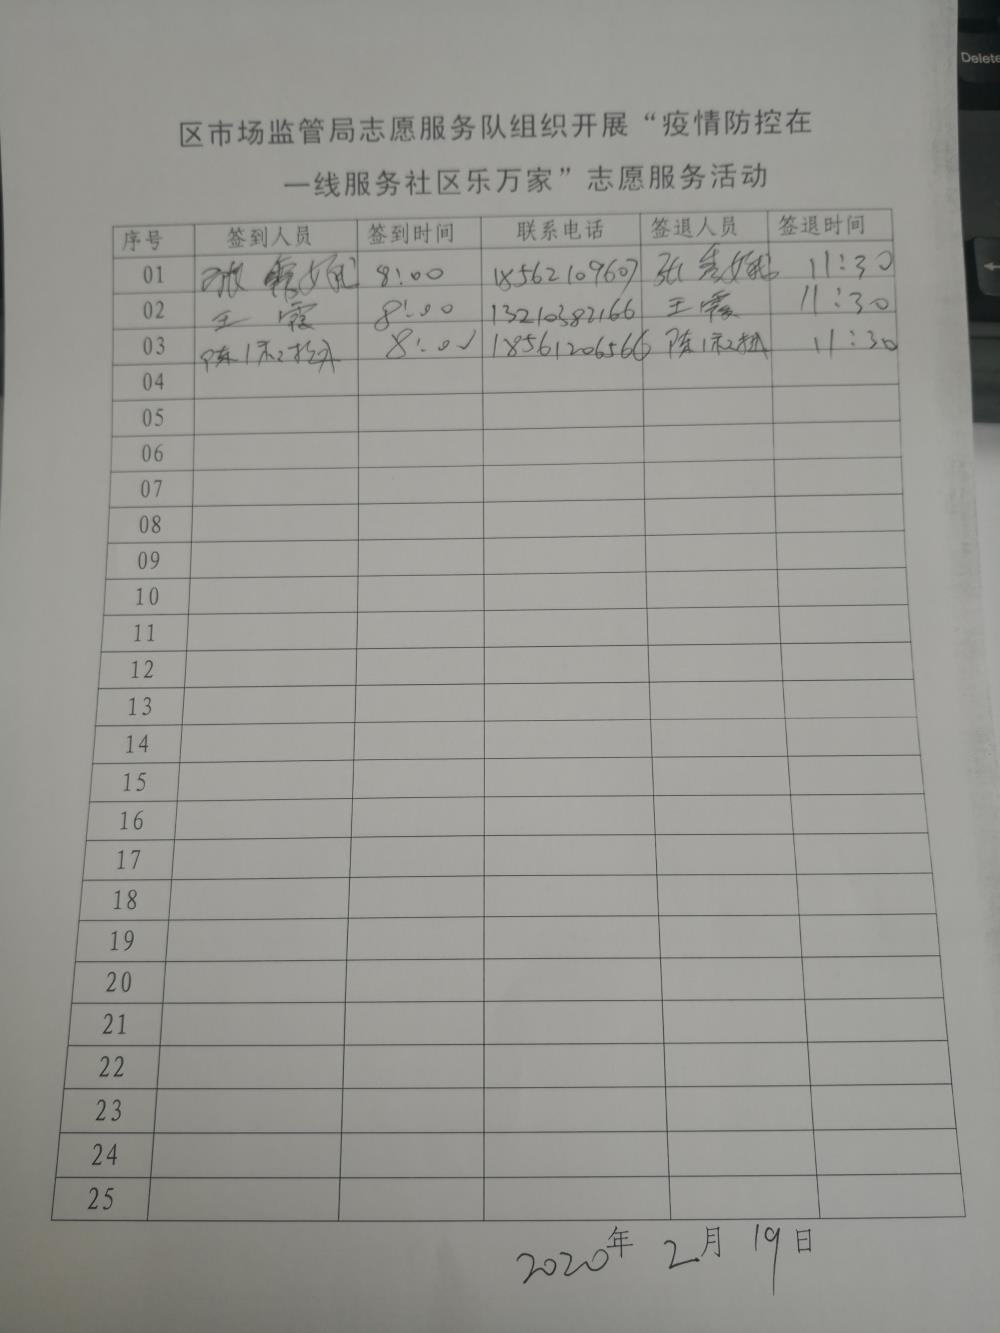 区市场监管局志愿服务队组织开展“疫情防控在
一线服务社区乐万家”志愿服务活动
序号 签到人员 签到时间 联系电话 签退人员 签退时间
01 8:00 18562109607 张 11:30
02 王霞 8:00 13210382166 王霞 11:30
03 陈 8:00 18561206566 陈 11:30
04
05
06
07
08
09
10
11
12
13
14
15
16
17
18
19
20
21
22
23
24
25
2020年 2月 19日
Delete